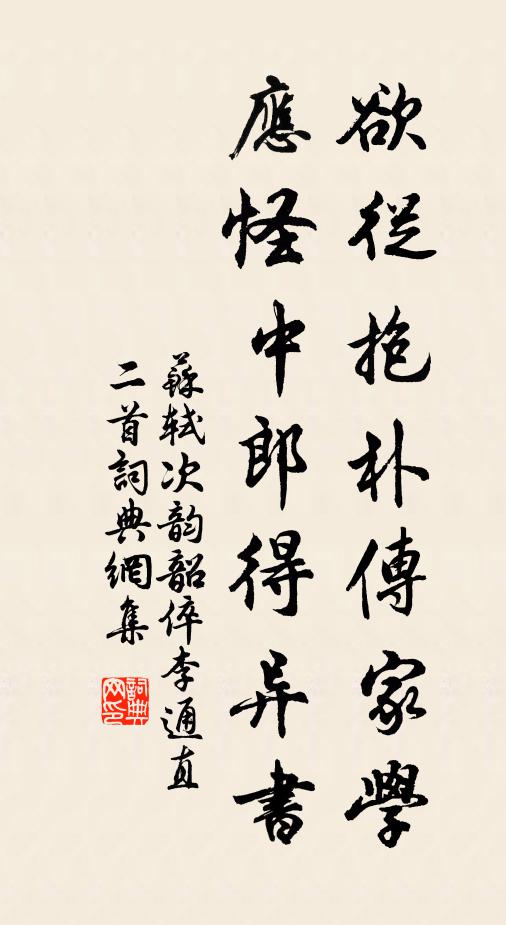 欲從抱朴傳家學
應怪中郎得异書
蘇軾次韵韶倅李通直
二首詞典網集
詞典
网印